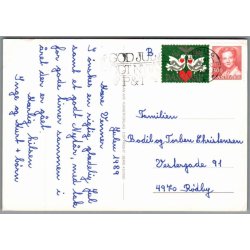 Jul 1989
Kære Venner
I ønskes en rigtig glædelig Jul
samt et godt Nytår, med tak
for gode timer sammen i
året der er gået.
Kærlig hilsen
Inge og Kurt + børn
B
GOD JUL
P&T
Familien
Bodil og Torben Christensen
Vestergade 91
4970 Rødby